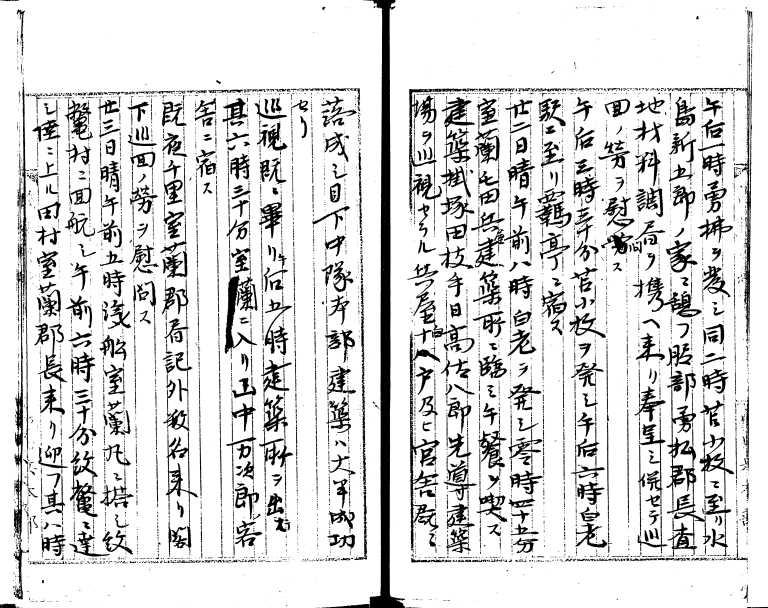 午后一時勇拂ヲ発シ同二時苫小牧ニ至リ水
島新五郎ノ家ニ憩フ服部勇払郡長直
地材料調居ヲ携ヘ来リ奉呈シ併セテ巡
回ノ労ヲ慰問ス
午后三時三十分苫小牧ヲ発シ午后六時白老
駅ニ至リ覊亭ニ宿ス
廿二日晴午前八時白老ヲ発シ零時四十五分
室蘭屯田兵建築所ニ臨ミ午餐ヲ喫ス
建築掛塚田技手日高佐八郎先導建築
場ヲ巡視セラル兵屋百十八戸及ヒ官舎既ニ
落成シ目下中隊本部建築ハ大半成功
セリ
巡視既ニ畢リ午后五時建築所ヲ出
其六時三十分室蘭ニ入リ山中万次郎客
舎ニ宿ス
既夜千里室蘭郡書記外数名来リ閣
下巡回ノ労ヲ慰問ス
廿三日晴午前五時汽船室蘭丸ニ搭シ紋
鼈村ニ回航シ午前六時三十分紋鼈ニ達
シ陸ニ上ル田村室蘭郡長来リ迎フ其八時